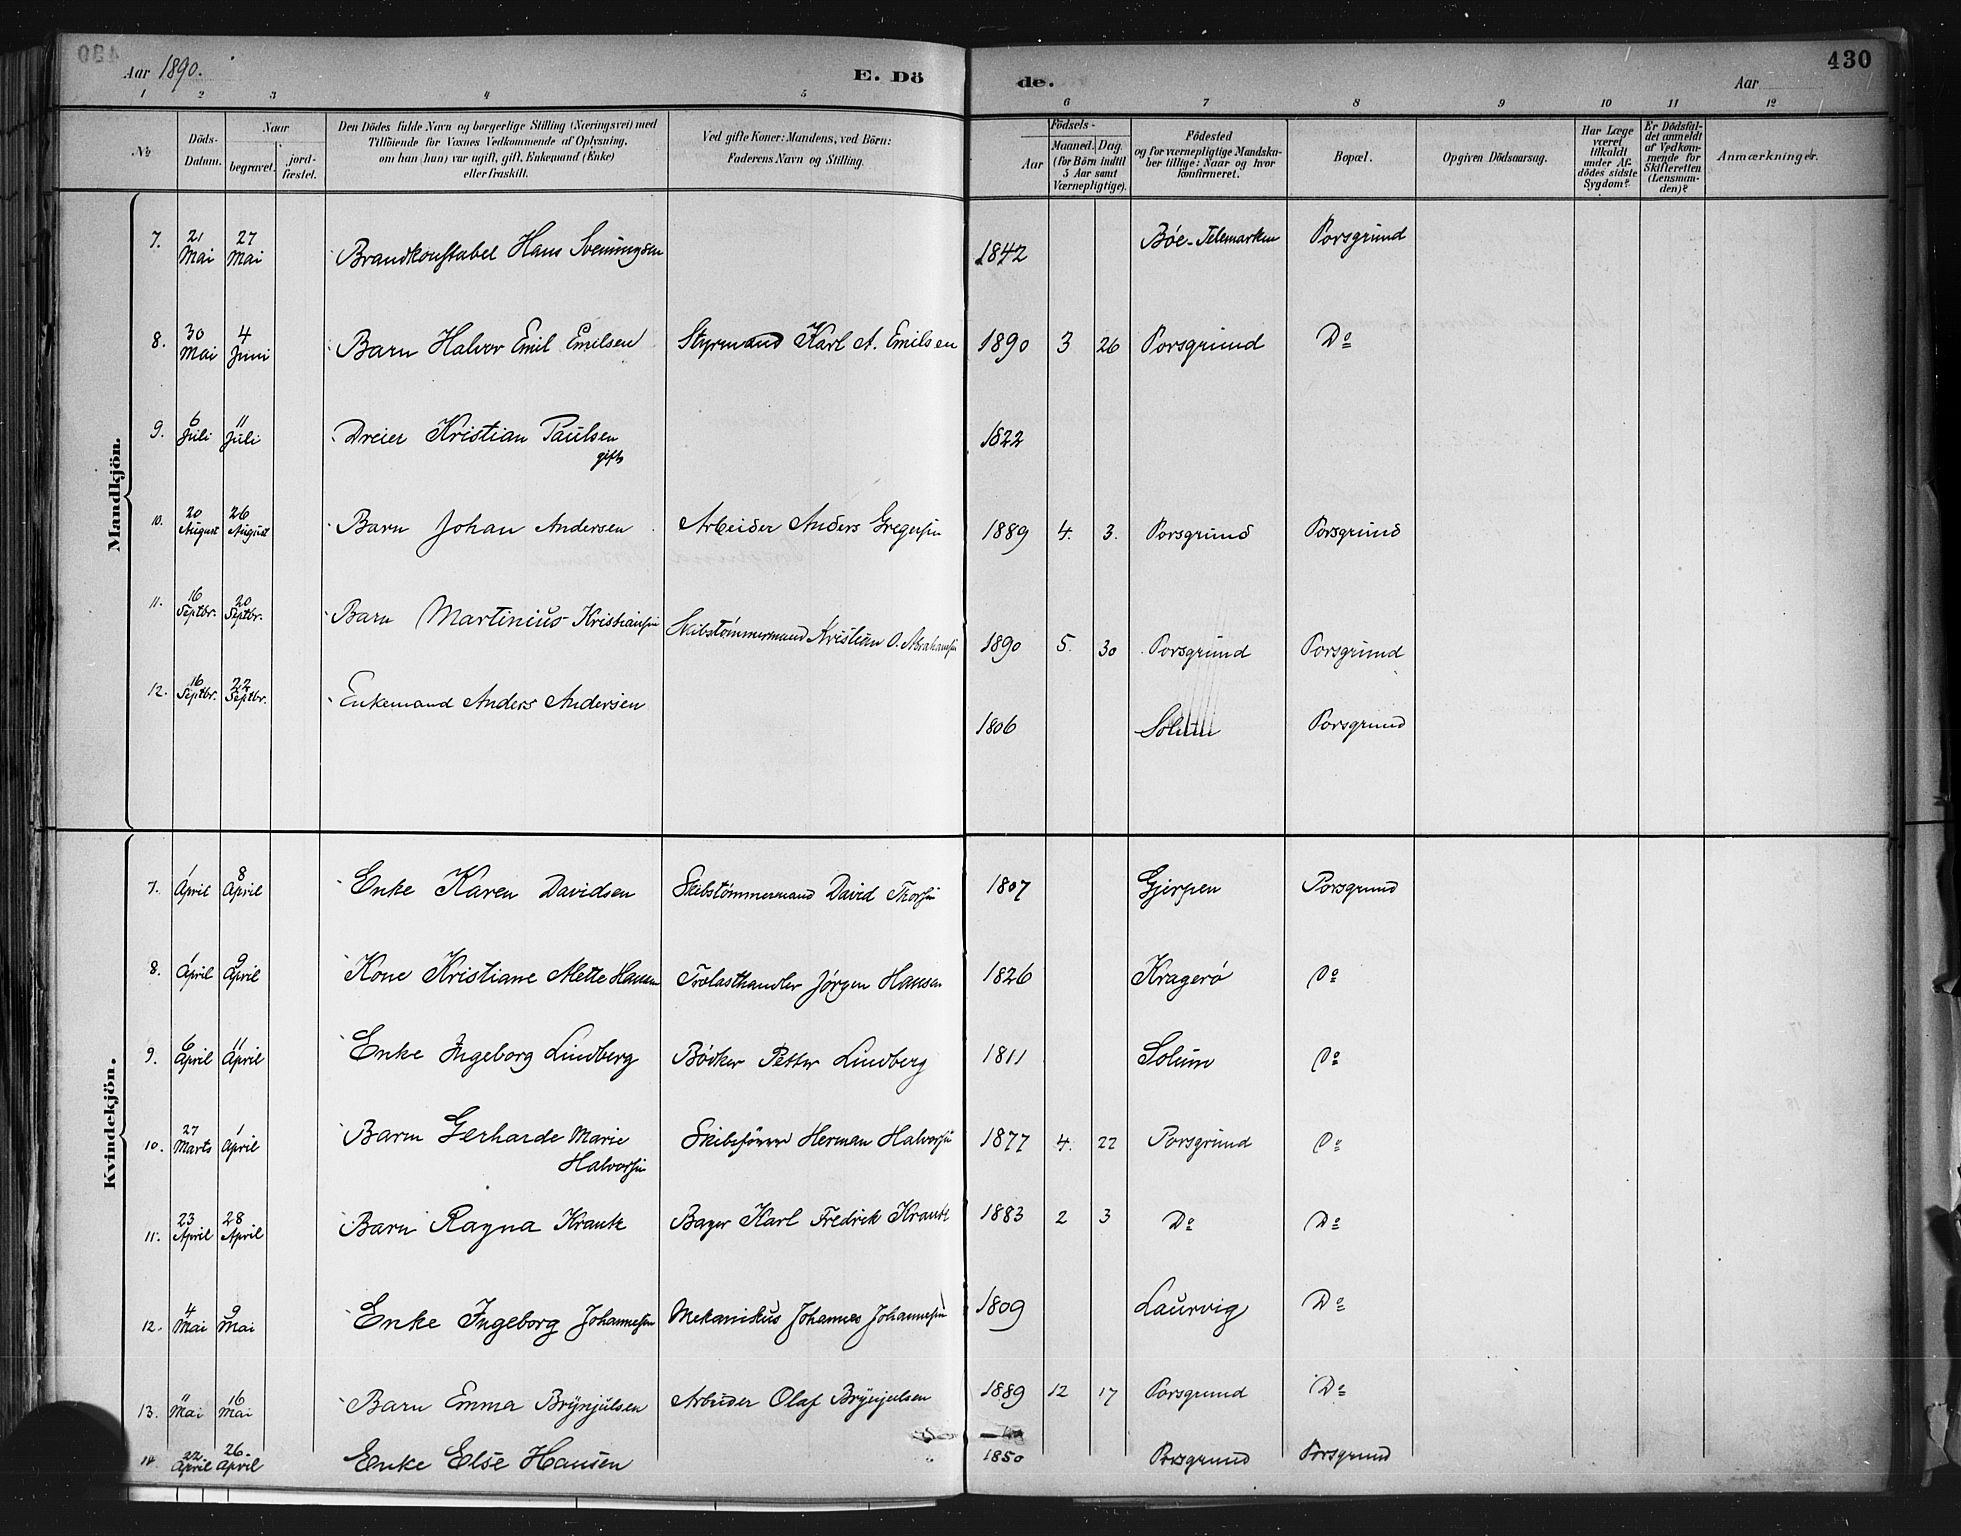 Aar 1890.
E. Dö
de.
430
Aar
1 2 3 4 5 6 7 8 9 10 11 12
No
Döds-Datum.
Naar
begravet.
jord-fæstet.
Den Dödes fulde Navn og borgerlige Stilling (Næringsvei) med
Tilföiende for Voxnes Vedkommende af Oplysning,
om han (hun) var ugift, gift, Enkemand (Enke)
eller fraskilt.
Ved gifte Koner: Mandens, ved Börn:
Faderens Navn og Stilling.
Födsels-
Aar
Maaned. Dag.
(for Börn indtil
5 Aar samt
Værnepligtige).
Födested
og for værnepligtige Mandska-
ber tillige: Naar og hvor
konfirmeret.
Bopæl.
Opgiven Dödsaarsag.
Har Læge
været
tilkaldt
under Af-
dödes sidste
Sygdom?
Er Dödsfal-
det anmeldt
af Vedkom-
mende for
Skifteretten
(Lensman-
den)?
Anmærkninger.
Mandkjön.
7. 21 Mai 27 Mai Brandkonstabel Hans Svenningsen 1842 Bøe-Telemarken Porsgrund
8. 30 Mai 4 Juni Barn Halvor Emil Emilsen Styrmand Karl A. Emilsen 1890 3 26 Porsgrund Do
9. 6 Juli 11 Juli Dreier Kristian Paulsen 1822
gift
10. 20 August 26 August Barn Johan Andersen Arbeider Anders Gregersen 1889 4. 3. Porsgrund Porsgrund
11. 16 Septbr. 20 Septbr. Barn Martinius Kristiansen Skibstømmermand Kristian O. Abrahamsen 1890 5. 30 Porsgrund Porsgrund
12. 16 Septbr. 22 Septbr. Enkemand Anders Andersen 1806 Solum Porsgrund
Kvindekjön.
7. 1 April 8 April Enke Karen Davidsen Skibstømmermand David Thorsen 1807 Gjerpen Porsgrund
8. 1 April 9 April Kone Kristiane Mette Hansen Trælasthandler Jørgen Hansen 1826 Kragerø Do
9. 6 April 11 April Enke Ingeborg Lindberg Bødker Petter Lindberg 1811 Solum Do
10. 27 Marts 1 April Barn Gerharde Marie Skibsfører Herman Halvorsen 1877 4. 22 Porsgrund Do
Halvorsen
11. 23 April 28 April Barn Ragna Krantz Bager Karl Fredrik Krantz 1883 2 3 Do Do
12. 4 Mai 9 Mai Enke Ingeborg Johannesen Mekanikus Johannes Johannesen 1809 Laurvig Do
13. 11 Mai 16 Mai Barn Emma Brynjulsen Arbeider Olaf Brynjulsen 1889 12 17 Porsgrund Do
14 22 April 26 April Enke Else Hansen 1850 Porsgrund Porsgrund